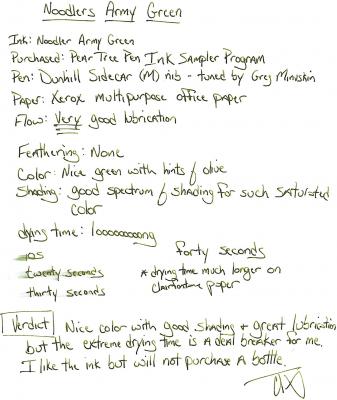 Noodlers Army Green
Ink: Noodler Army Green
Purchased: Pear Tree Pen Ink Sampler Program
Pen: Dunhill Sidecar (M) nib - tuned by Greg Minuskin
Paper: Xerox multipurpose office paper
Flow: Very good lubrication
Feathering: None
Color: Nice green with hints of olive
Shading: good spectrum of shading for such saturated
color
drying time: looooooooong
forty seconds
twenty seconds
* drying time much longer on
thirty seconds
clairfontaine paper
Verdict
Nice color with good shading + great lubrication
but the extreme drying time is a deal breaker for me.
I like the ink but will not purchase a bottle.